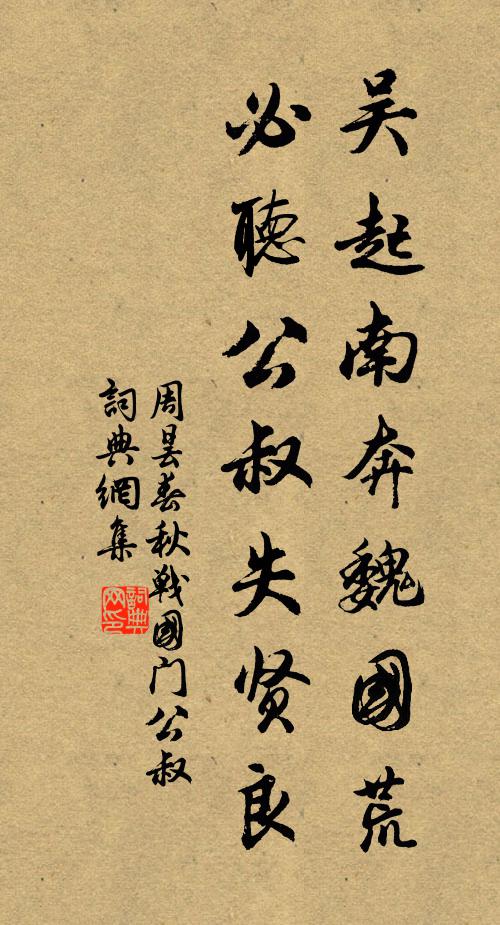 吴起南奔魏國荒
必聽公叔失贤良
周昙春秋戰國门公叔
詞典網集
詞典网印